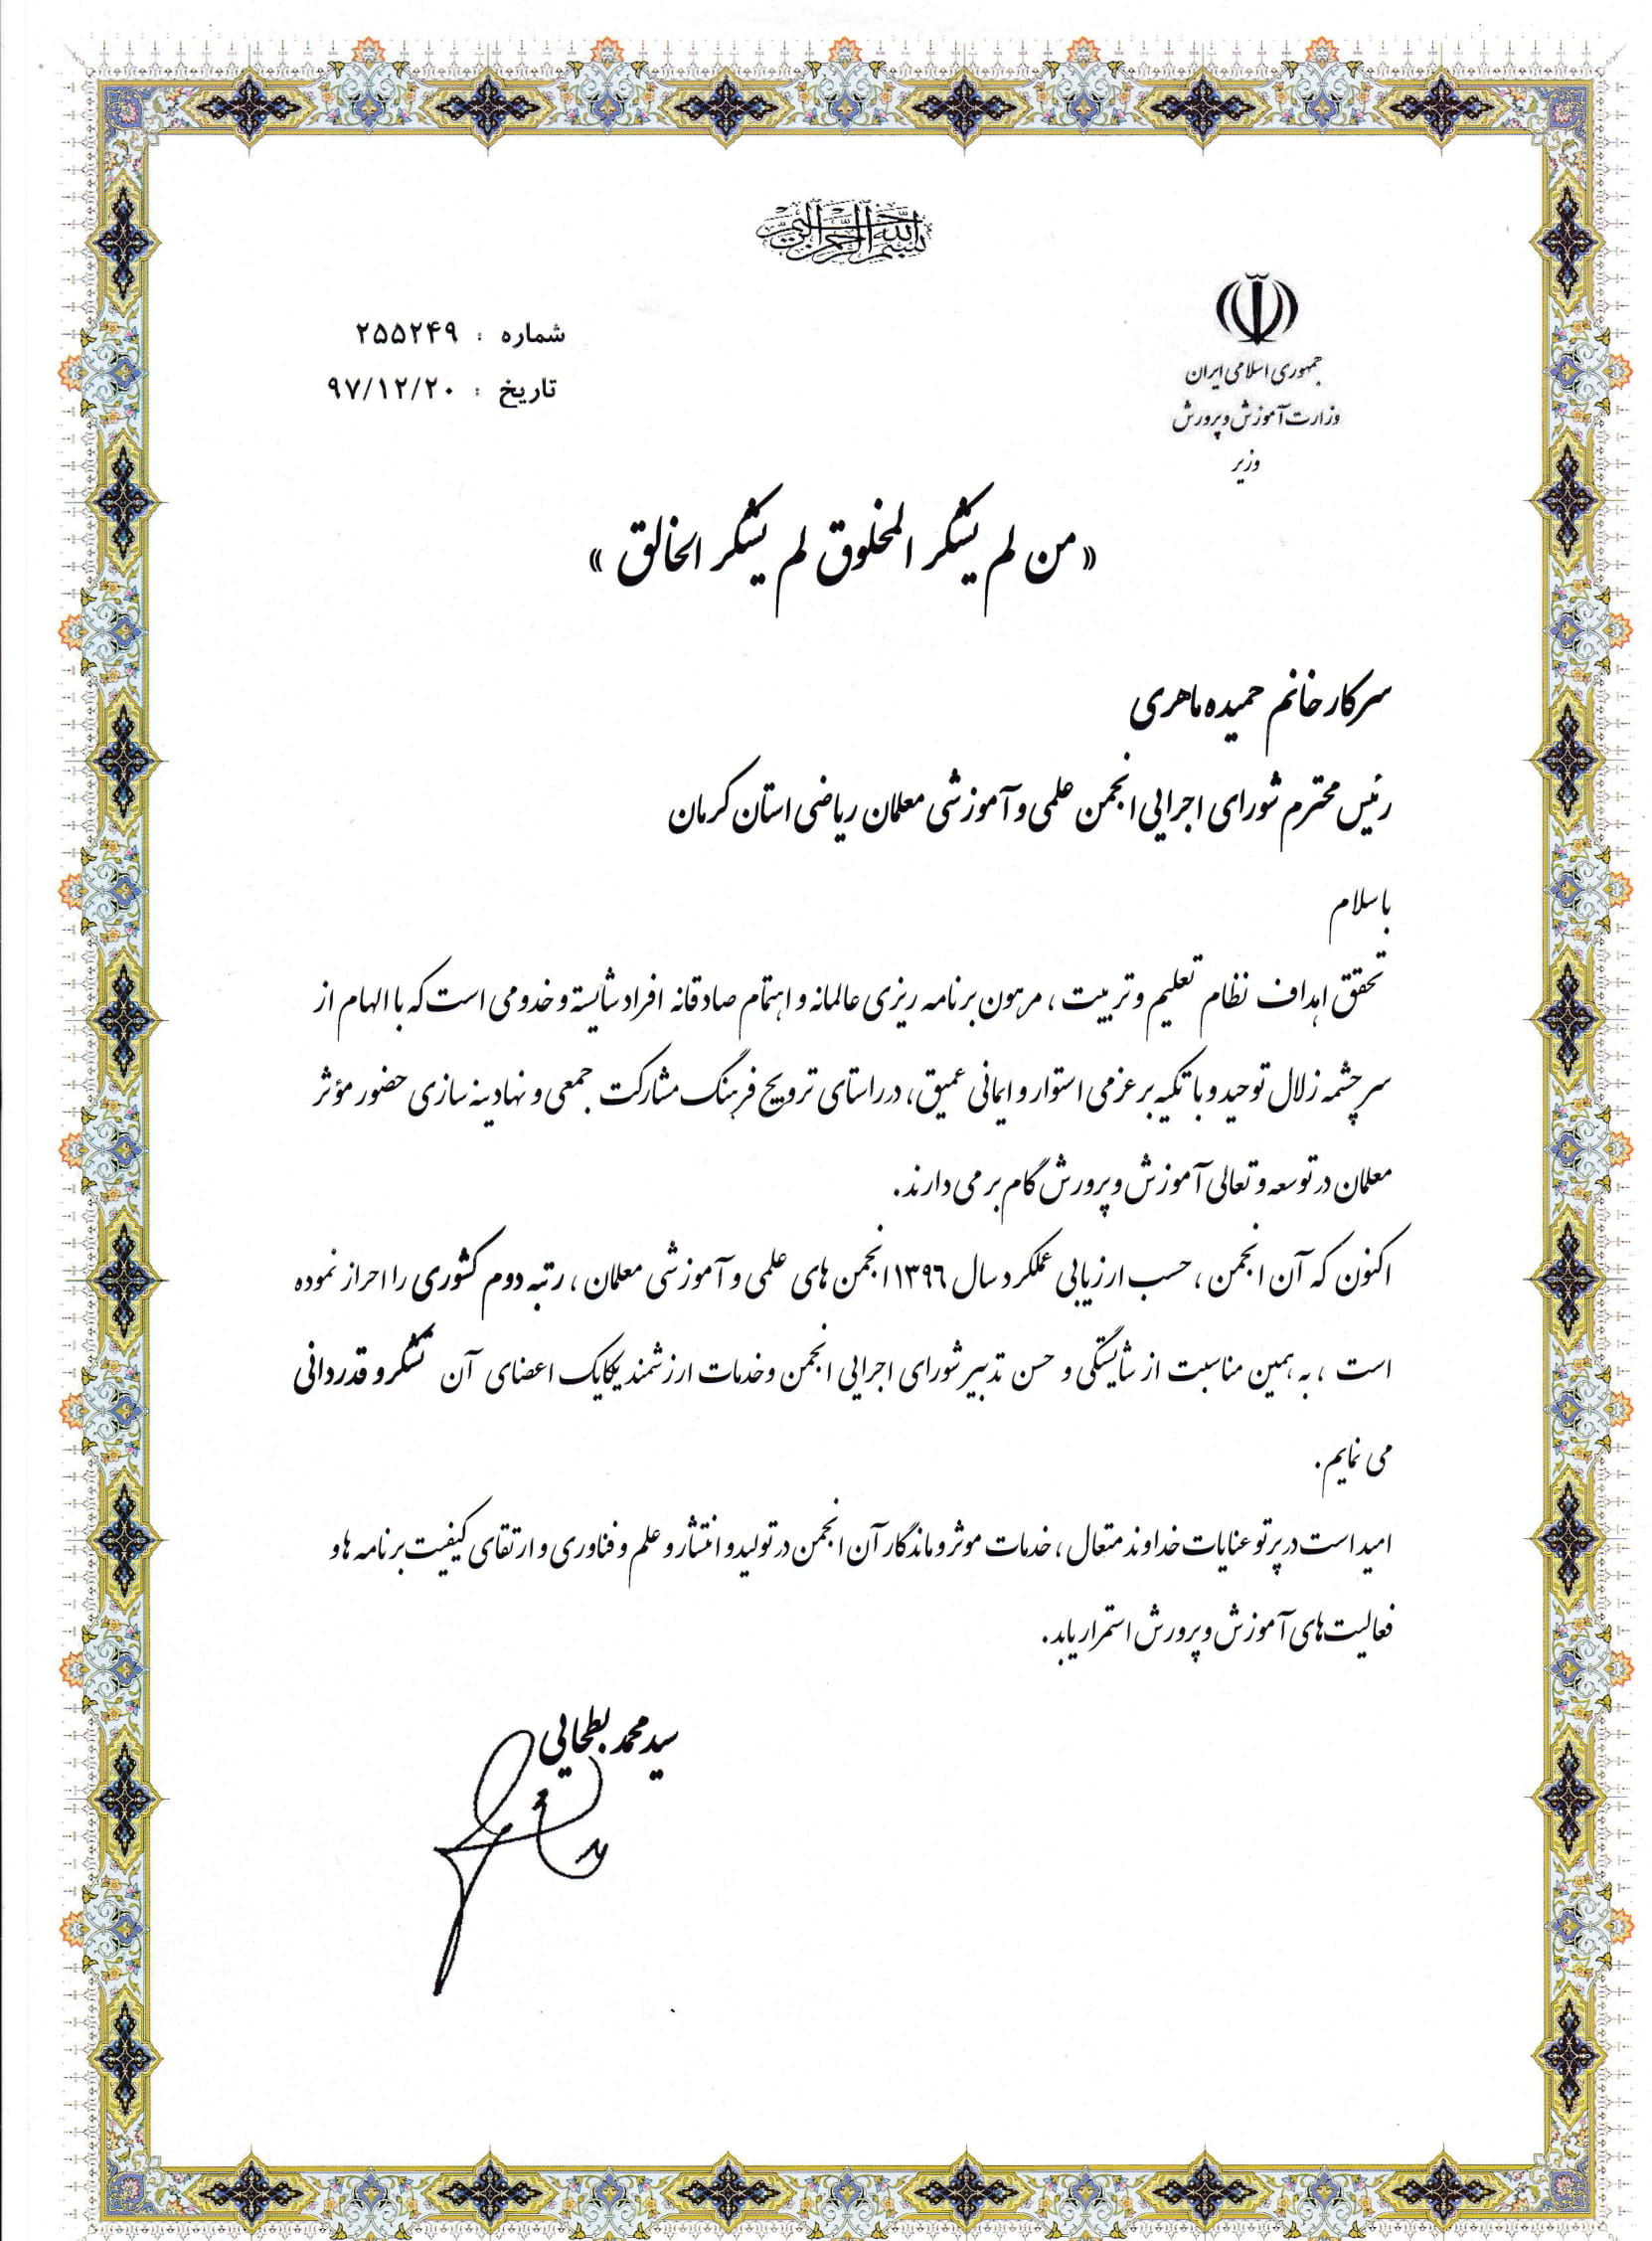 بسم الله الرحمن الرحیم
جمهوری اسلامی ایران
وزارت آموزش و پرورش
وزیر
شماره : ۲۵۵۲۴۹
تاریخ : ۹۷/۱۲/۲۰
« من لم یشکر المخلوق لم یشکر الخالق »
سرکار خانم حمیده ماهری
رئیس محترم شورای اجرایی انجمن علمی و آموزشی معلمان ریاضی استان کرمان
با سلام
تحقق اهداف نظام تعلیم و تربیت ، مرهون برنامه ریزی عالمانه و اهتمام صادقانه افراد شایسته و خدومی است که با الهام از
سرچشمه زلال توحید و با تکیه بر عزمی استوار و ایمانی عمیق، در راستای ترویج فرهنگ مشارکت جمعی و نهادینه سازی حضور مؤثر
معلمان در توسعه و تعالی آموزش و پرورش گام بر می دارند.
اکنون که آن انجمن ، حسب ارزیابی عملکرد سال ۱۳۹۶ انجمن های علمی و آموزشی معلمان ، رتبه دوم کشوری را احراز نموده
است ، به همین مناسبت از شایستگی و حسن تدبیر شورای اجرایی انجمن و خدمات ارزشمند یکایک اعضای آن تشکر و قدردانی
می نمایم.
امید است در پرتو عنایات خداوند متعال ، خدمات موثر و ماندگار آن انجمن در تولید و انتشار و علم و فناوری و ارتقای کیفیت برنامه ها و
فعالیت های آموزش و پرورش استمرار یابد.
سید محمد بطحایی